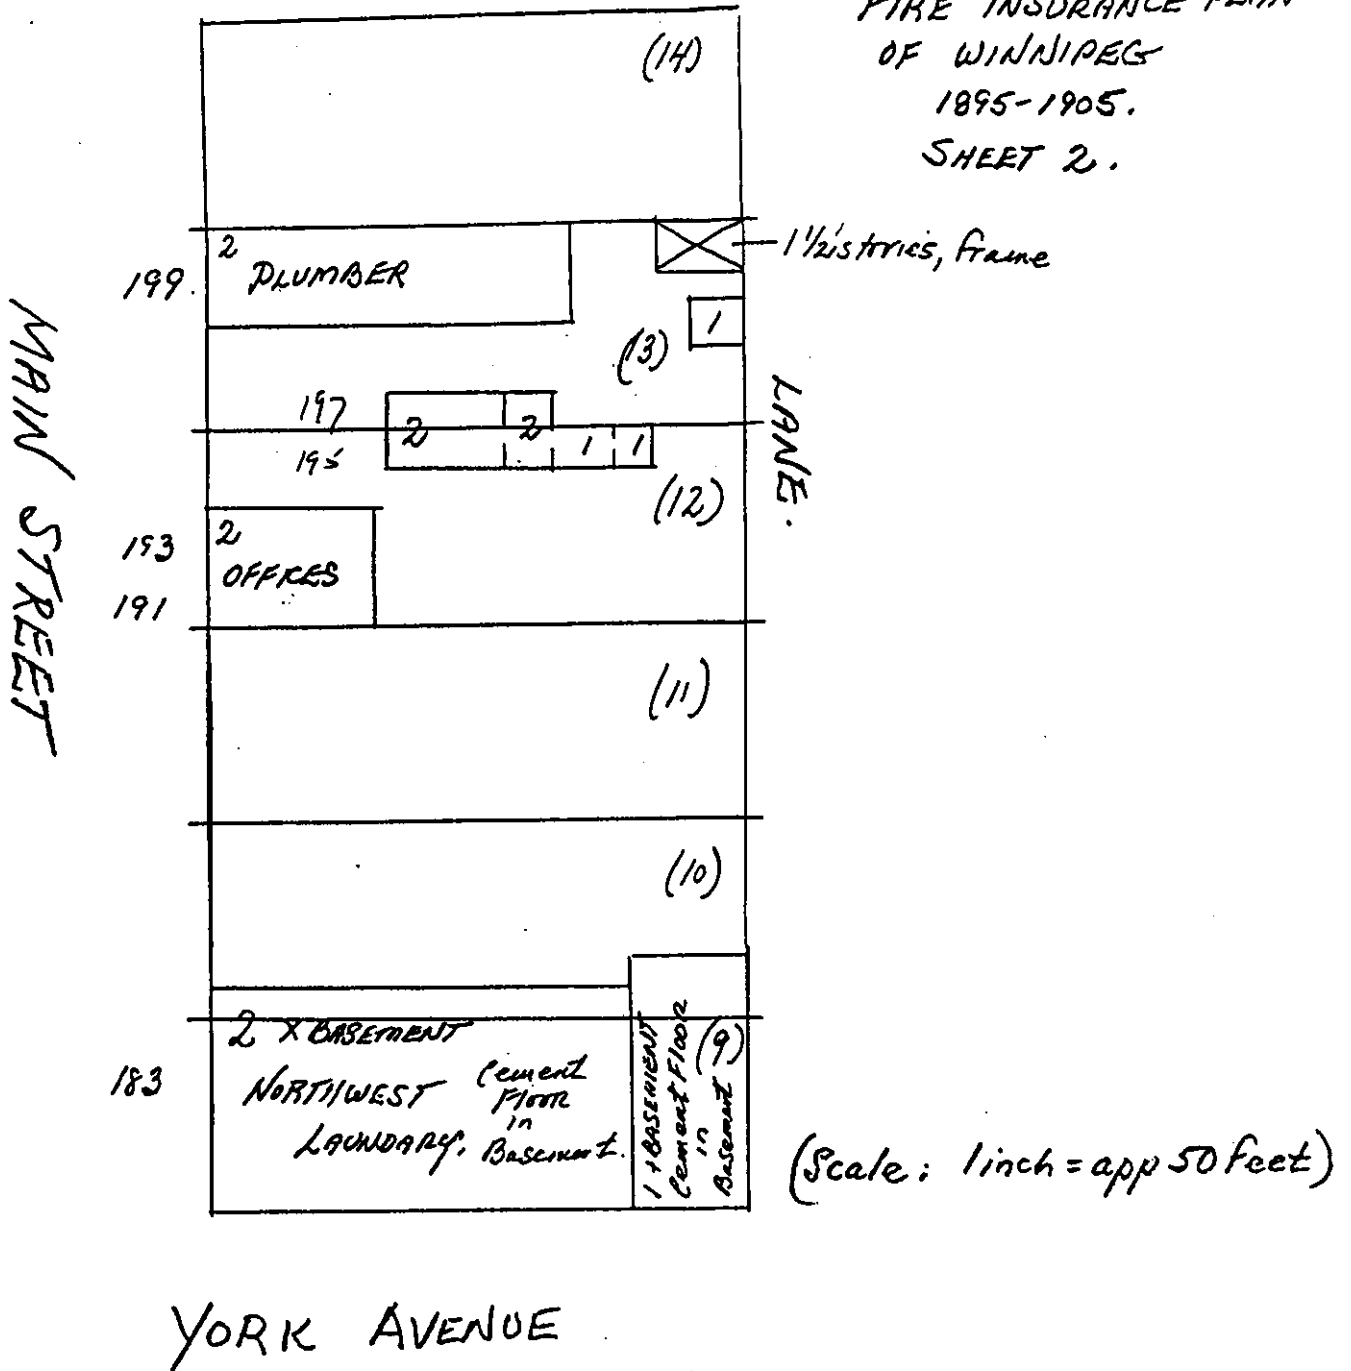 FIRE INSURANCE PLAN
OF WINNIPEG
1895-1905.
SHEET 2.
(14)
2
PLUMBER
199
1 1/2 stories, frame
1
(13)
197
195
2
2
1
1
(12)
193
191
2
OFFICES
MAIN STREET
LANE.
(11)
(10)
183
2 X BASEMENT
NORTHWEST
LAUNDARY.
Cement
Floor
in
Basement.
1 + BASEMENT
Cement Floor
in
Basement
(9)
(Scale: 1 inch = app 50 feet)
YORK AVENUE